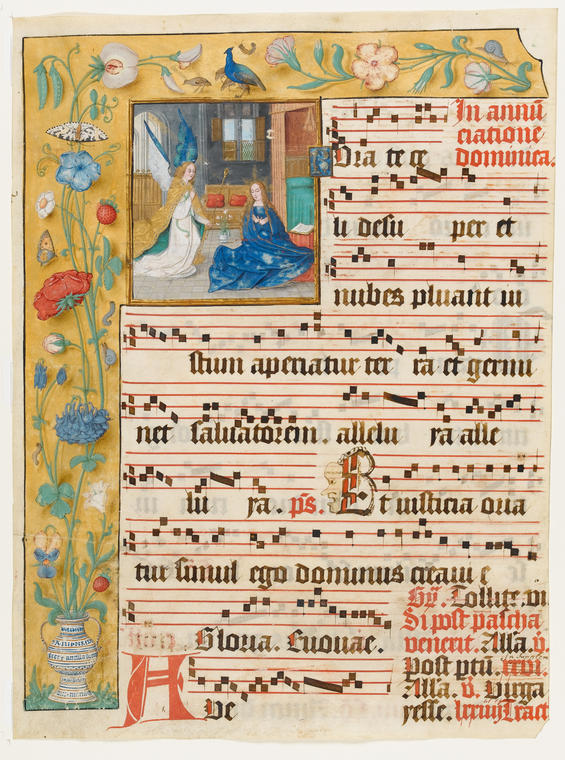 In annū
ciatione
dominica.
Ora te ce
li desu per et
nubes pluant iu
stum aperiatur ter ra et germi
net saluatorem. allelu ya alle
lu ya. ps. Et iusticia oria
tur simul ego dominus creaui e
Gloria. Euouae.
Tollite.
Si post pascha
venerit. Alla. v.
Post ptū. xxvi.
Alla. v. Virga
A Ve yesse. lxxiiij Tract